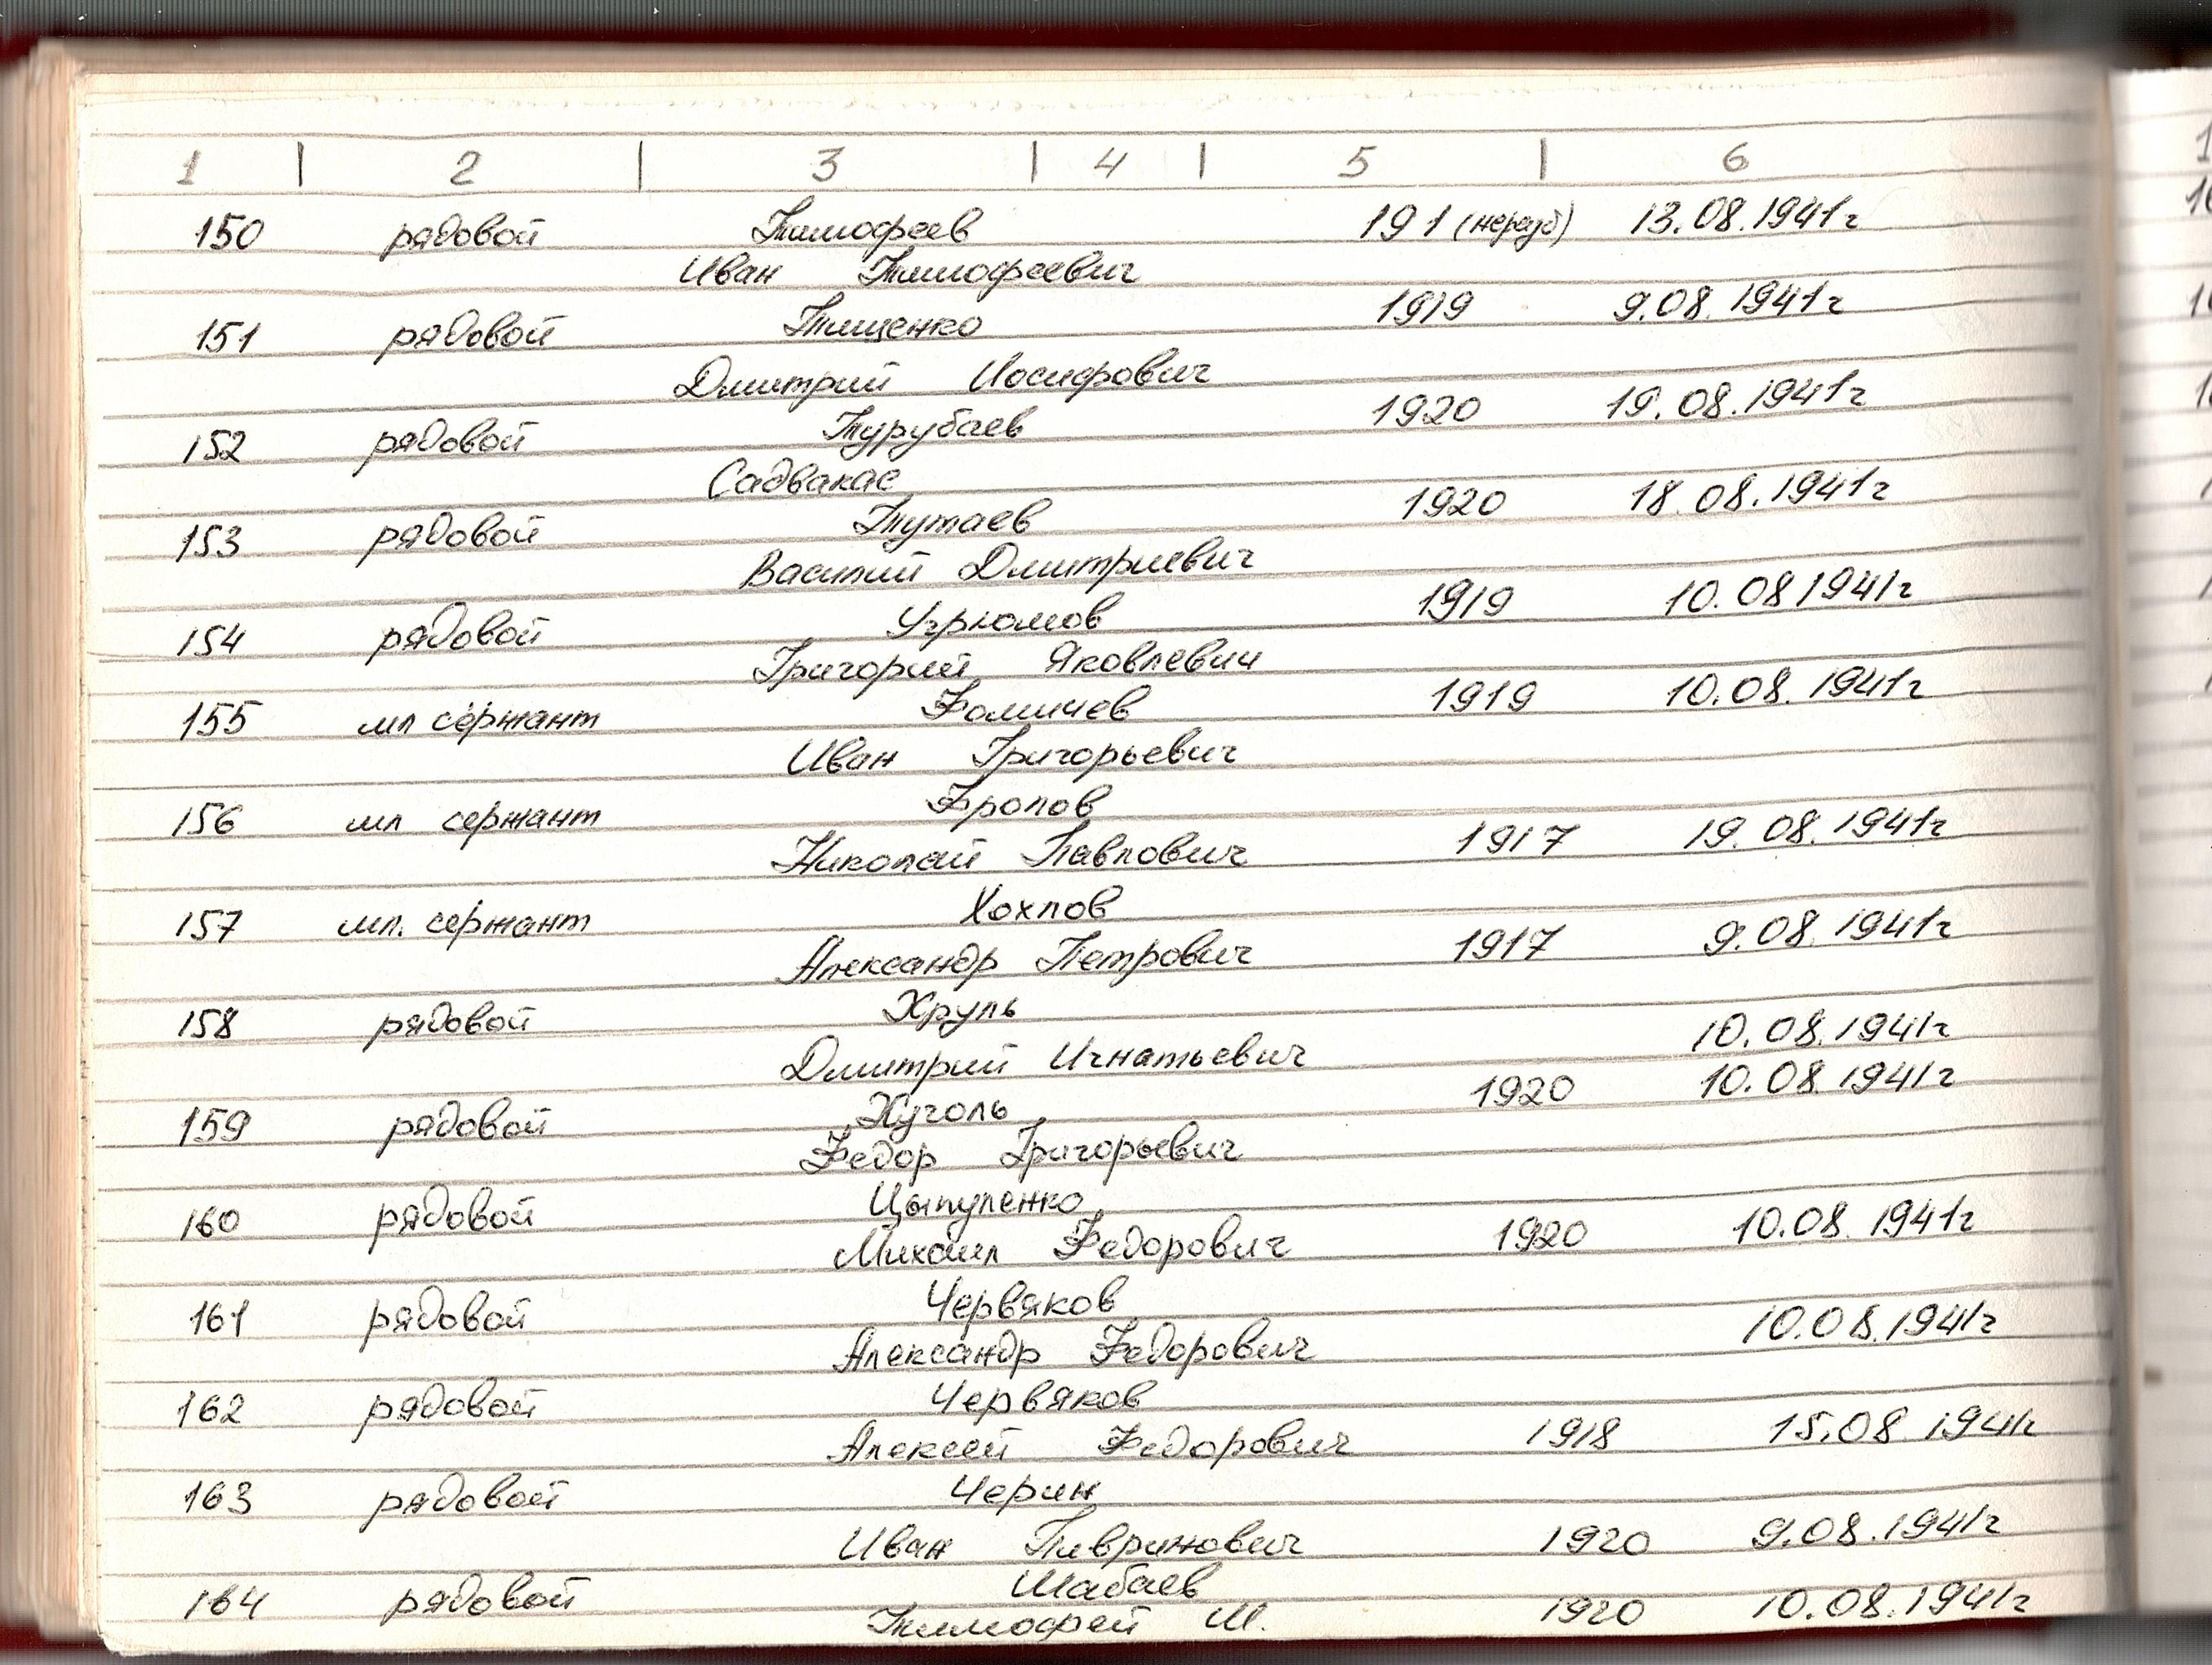 1 | 2 | 3 | 4 | 5 | 6
150 рядовой Тимофеев 191 (нераз) 13.08.1941г
Иван Тимофеевич
151 рядовой Тищенко 1919 9.08.1941г
Дмитрий Иосифович
152 рядовой Турубаев 1920 19.08.1941г
Садвакас
153 рядовой Тутаев 1920 18.08.1941г
Василий Дмитриевич
154 рядовой Угрюмов 1919 10.08 1941г
Григорий Яковлевич
155 мл сержант Фомичев 1919 10.08.1941г
Иван Григорьевич
156 мл сержант Фролов
Николай Павлович 1917 19.08.1941г
157 мл. сержант Хохлов
Александр Петрович 1917 9.08.1941г
158 рядовой Хруль
Дмитрий Игнатьевич 10.08.1941г
159 рядовой Хуголь 1920 10.08.1941г
Федор Григорьевич
160 рядовой Цыпуленко
Михаил Федорович 1920 10.08.1941г
161 рядовой Червяков
Александр Федорович 10.08.1941г
162 рядовой Червяков
Алексей Федорович 1918 15.08.1941г
163 рядовой Черин
Иван 1920 9.08.1941г
164 рядовой Шабаев
Тимофей Ш. 1920 10.08.1941г